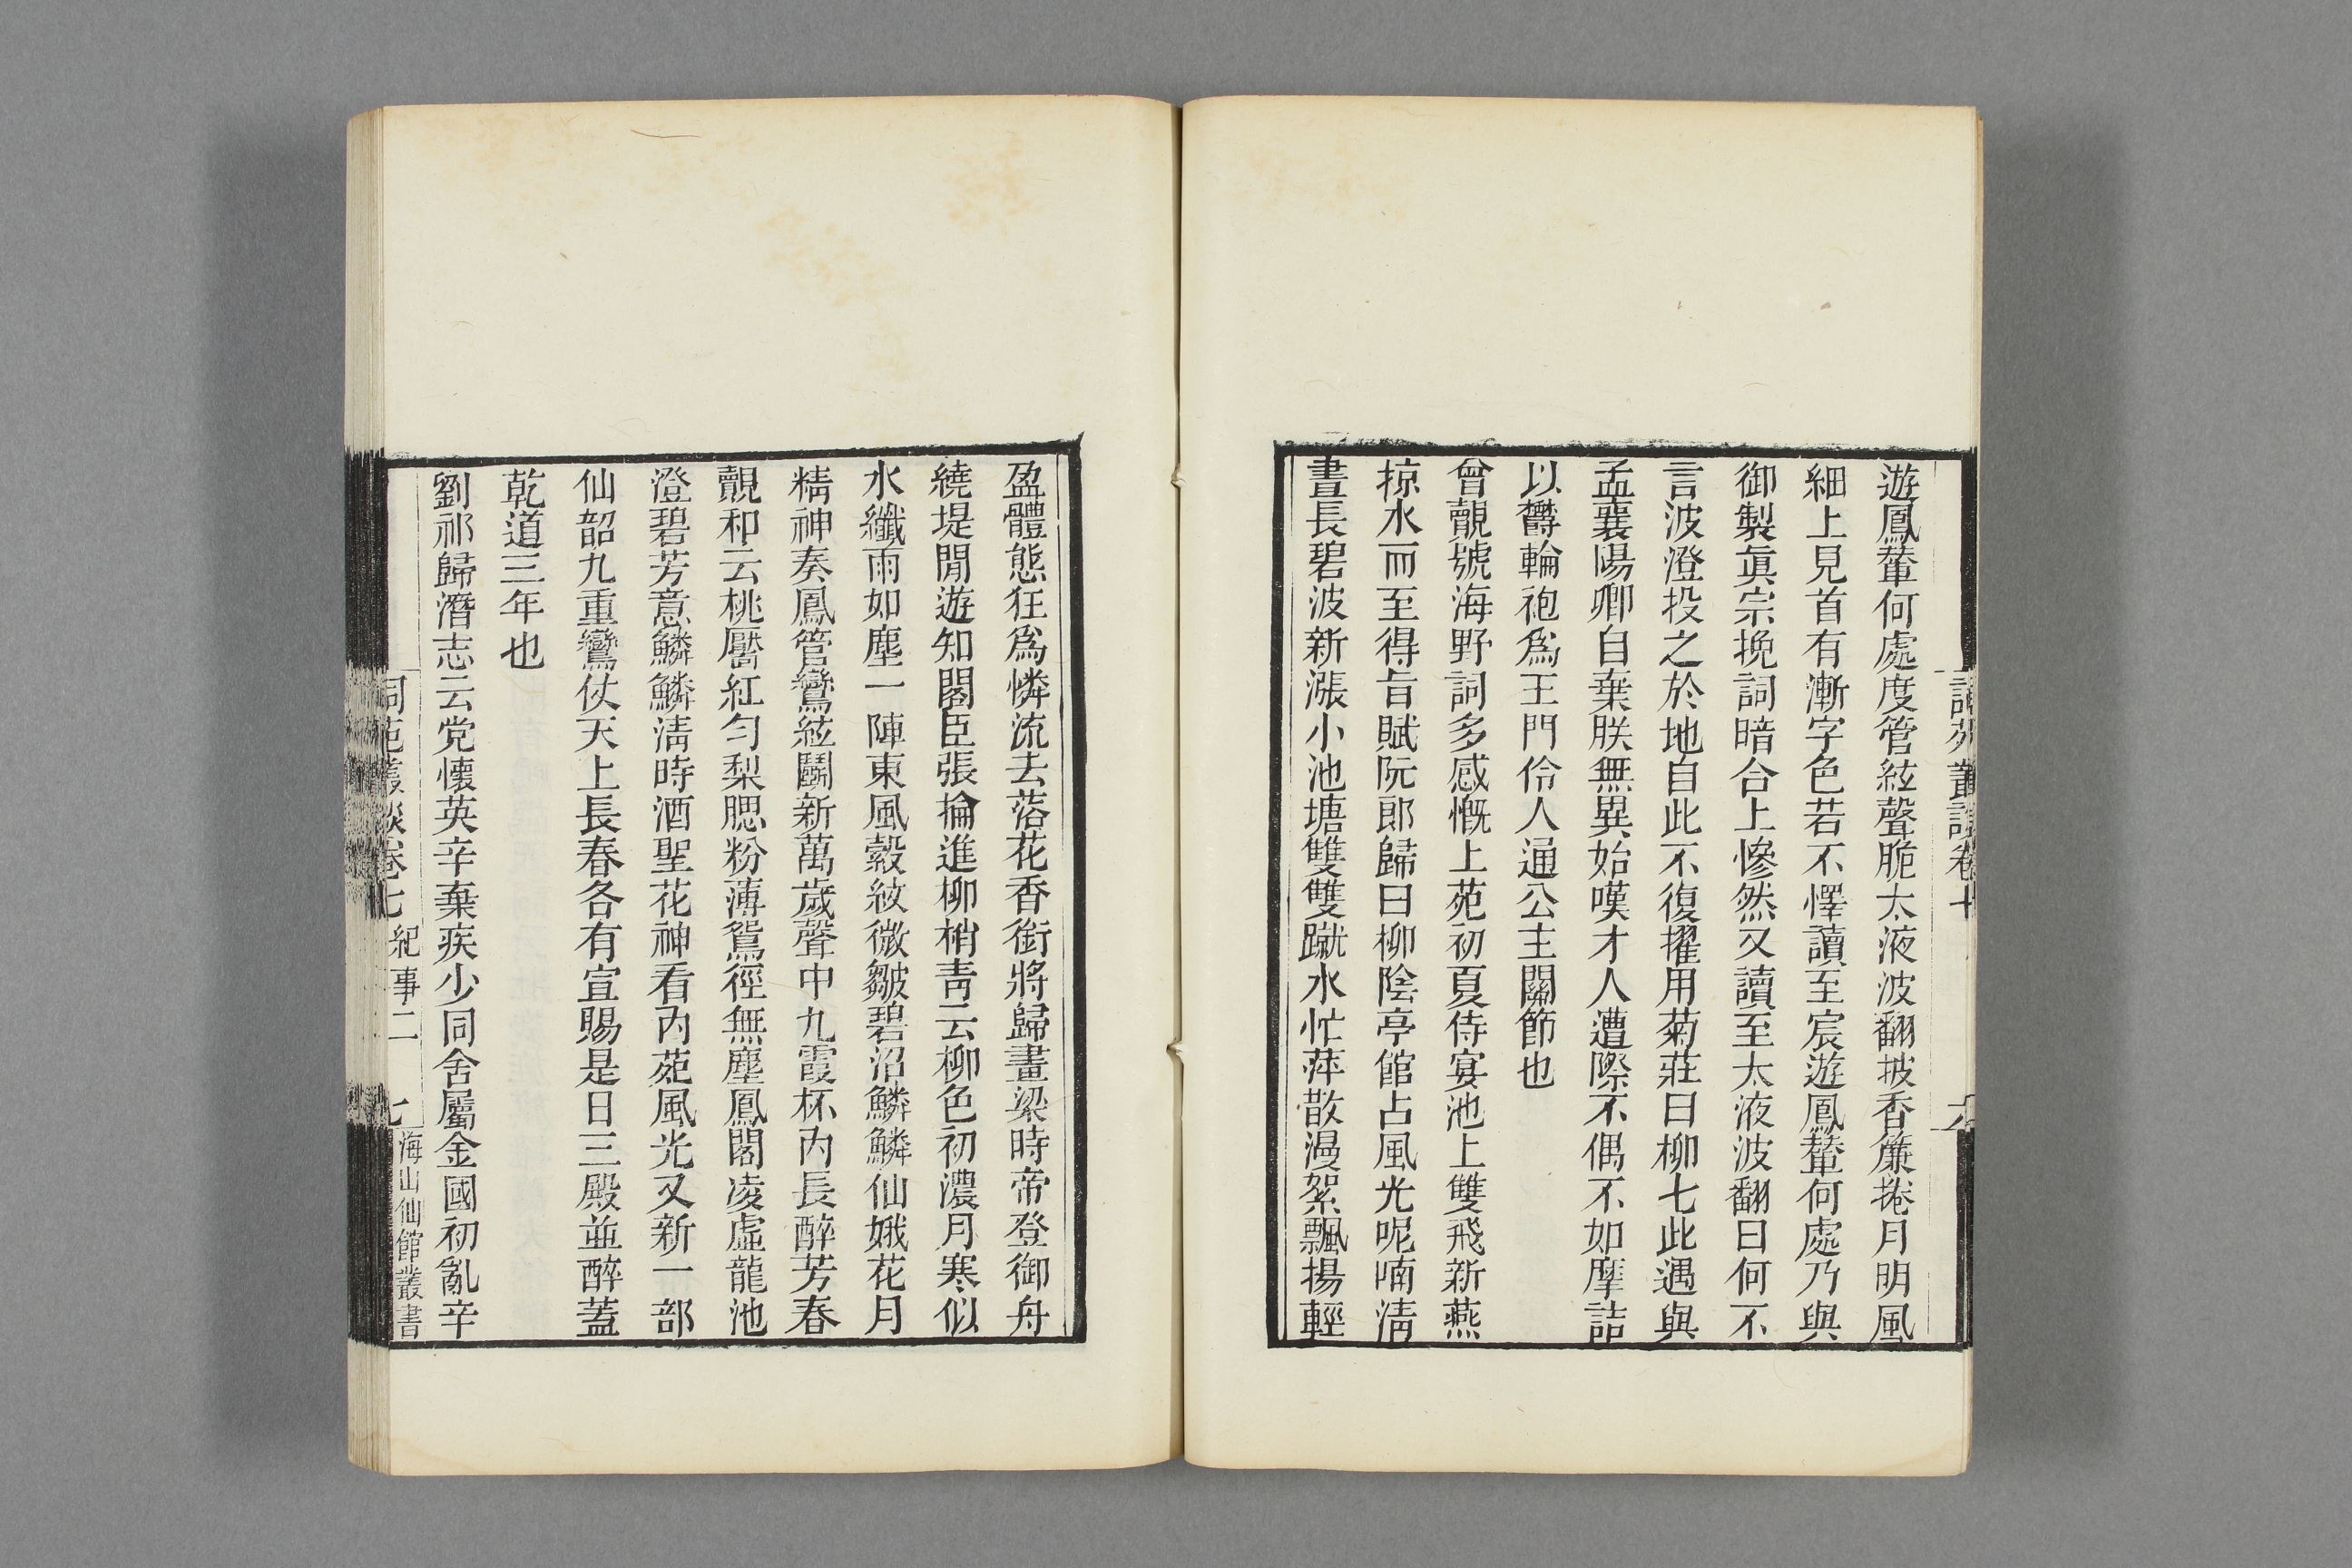 遊鳳輦何處度管絃聲脆太液波翻披香簾捲月明風
細上見首有漸字色若不懌讀至宸遊鳳輦何處乃與
御製眞宗挽詞暗合上慘然又讀至太液波翻曰何不
言波澄投之於地自此不復擢用菊莊曰柳七此遇與
孟襄陽卿自棄朕無異始嘆才人遭際不偶不如摩詰
以欝輪袍爲王門伶人通公主關節也
曾覿號海野詞多感慨上苑初夏侍宴池上雙飛新燕
掠水而至得旨賦阮郎歸曰柳陰亭館占風光呢喃清
晝長碧波新漲小池塘雙雙蹴水忙萍散漫絮飄揚輕
盈體態狂爲憐流去落花香銜將歸畫梁時帝登御舟
繞堤閒遊知閣臣張掄進柳梢青云柳色初濃月寒似
水纖雨如塵一陣東風縠紋微皺碧沼鱗鱗仙娥花月
精神奏鳳管鸞絃鬬新萬歲聲中九霞杯內長醉芳春
覿和云桃靨紅勻梨腮粉薄鴛徑無塵鳳閣凌虛龍池
澄碧芳意鱗鱗清時酒聖花神看內苑風光又新一部
仙韶九重鸞仗天上長春各有宣賜是日三殿並醉蓋
乾道三年也
劉祁歸潛志云党懷英辛棄疾少同舍屬金國初亂辛
詞苑叢談卷七 紀事二 七 海山仙館叢書